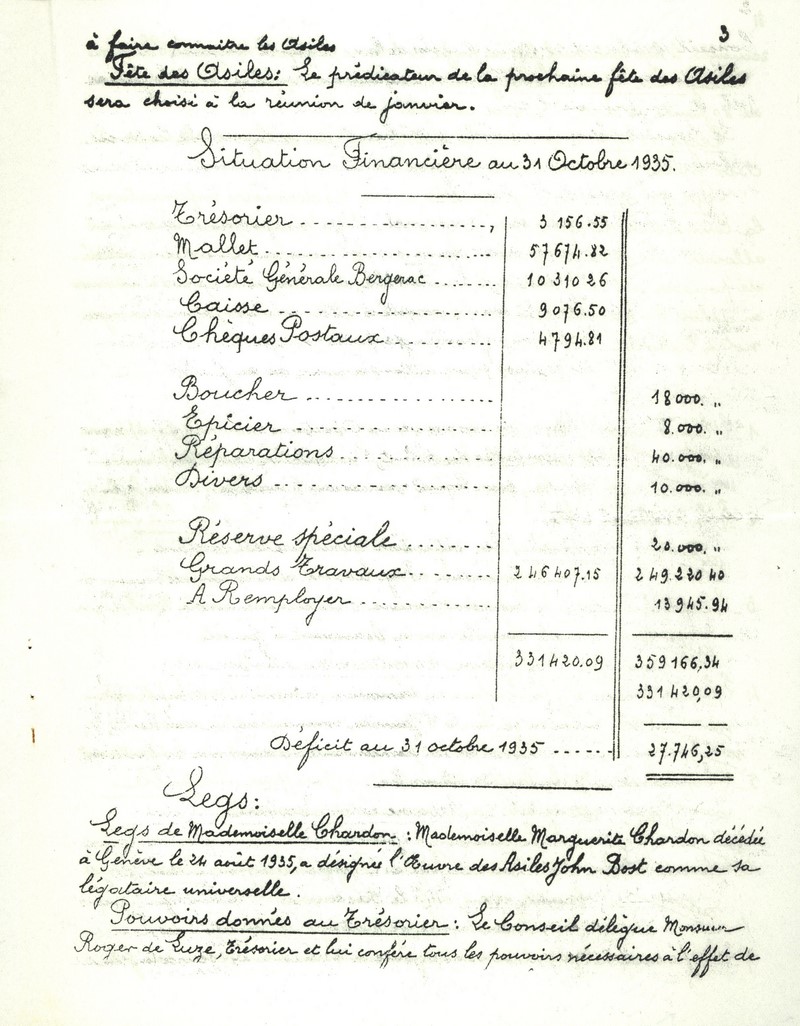 3
à faire connaitre les Asiles
Fête des Asiles: Le prédicateur de la prochaine fête des Asiles
sera choisi à la réunion de janvier.
Situation Financière au 31 Octobre 1935.
Trésorier 3 156.55
Mallet 57674.82
Société Générale Bergerac 10 310 26
Caisse 9 076.50
Chèques Postaux 4 794.81
Boucher 18 000. „
Epicier 8.000. „
Réparations 40.000. „
Divers 10.000. „
Réserve spéciale 20.000. „
Grands Travaux 246407.15 249.220 40
A Remployer 13945.94
331420.09 359166,34
331420,09
Déficit au 31 octobre 1935 27.746,25
Legs:
Legs de Mademoiselle Chardon : Mademoiselle Marguerite Chardon décédée
à Genève le 24 août 1935, a désigné l'Œuvre des Asiles John Bost comme sa
légataire universelle.
Pouvoirs donnés au Trésorier : Le Conseil délègue Monsieur
Roger de Luze, Trésorier et lui confère tous les pouvoirs nécessaires à l'effet de